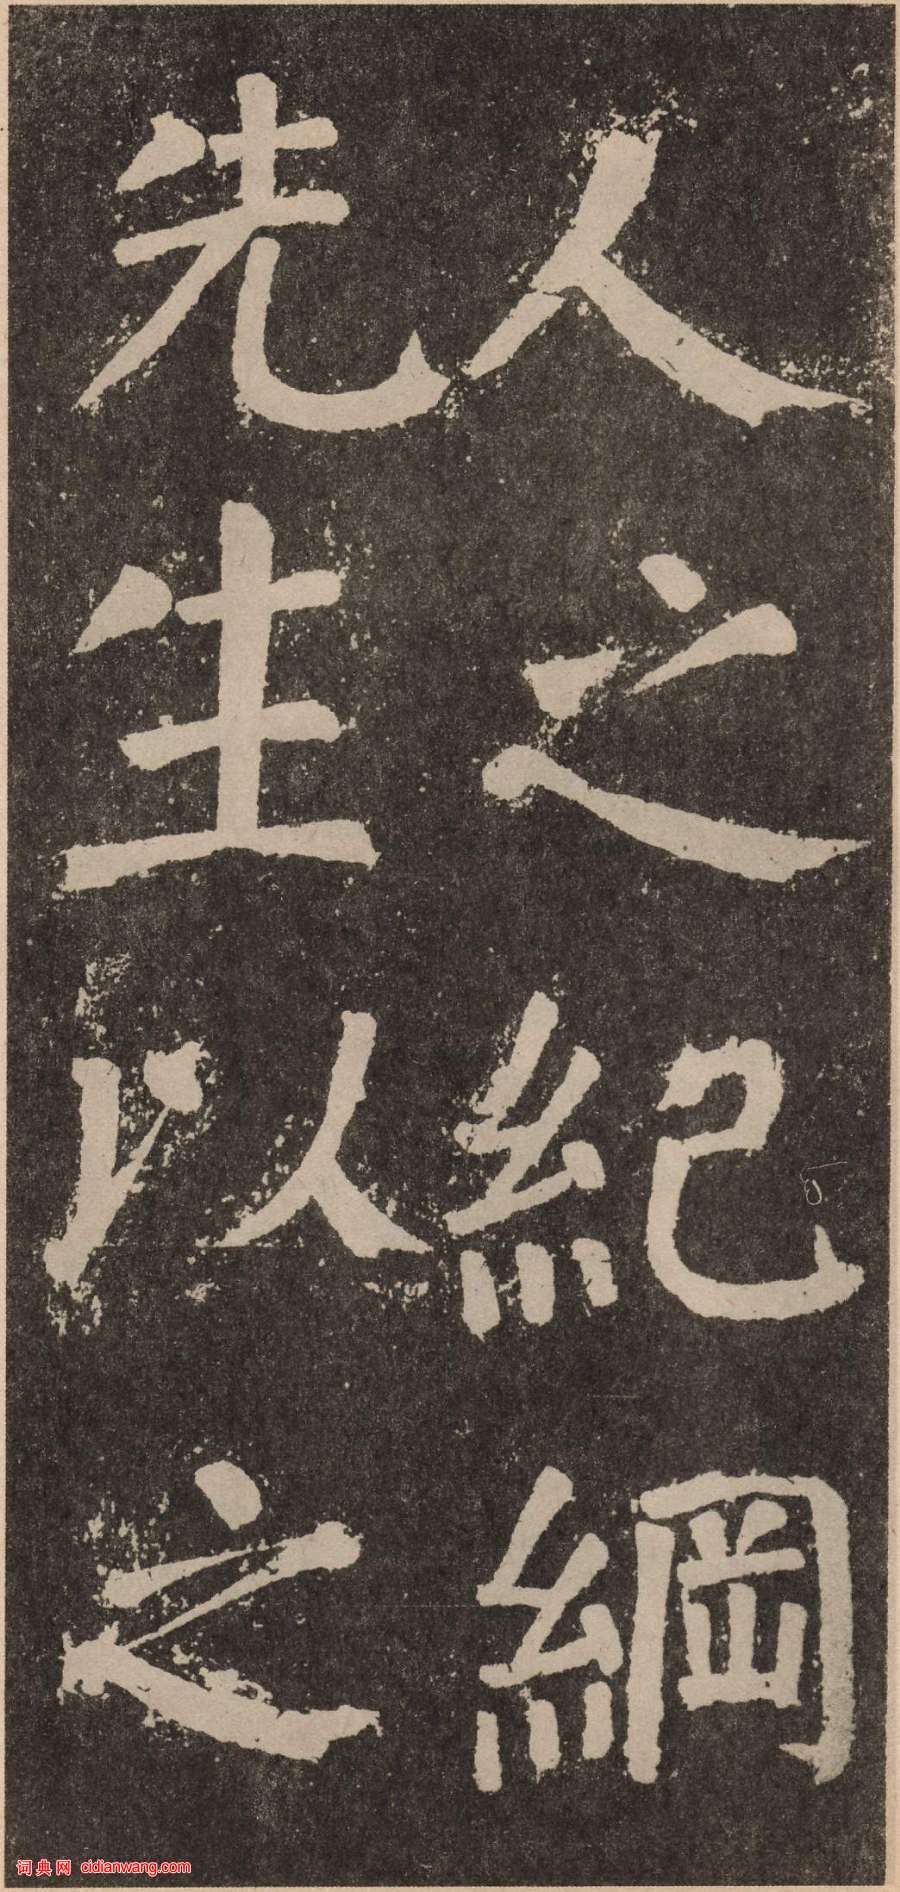 人之紀綱
先生以之
词典网 cidianwang.com